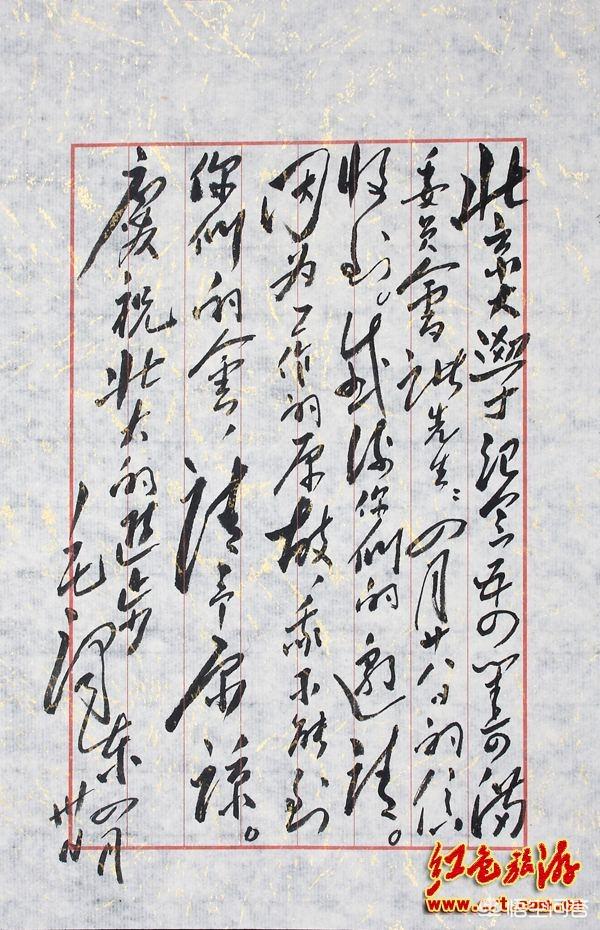 北京大學纪念五四筹备
委员會诸先生：四月廿八日的信
收到。感谢你们的邀请。
因为工作的原故、我不能到
你们的會、请予原谅。
慶祝北大的進步
毛澤东 四月
卅日
红色旅游
www.crt.com.cn
悟空问答